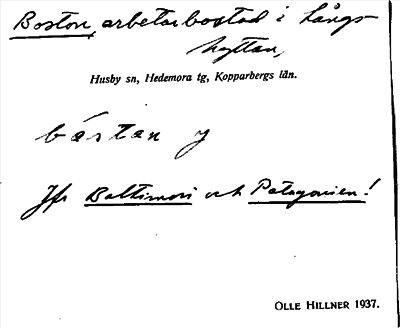 Boston, arbetarbostad i Långs-
hyttan,
Husby sn, Hedemora tg, Kopparbergs län.
båstan y
Jfr Baltimori och Patagonien!
OLLE HILLNER 1937.